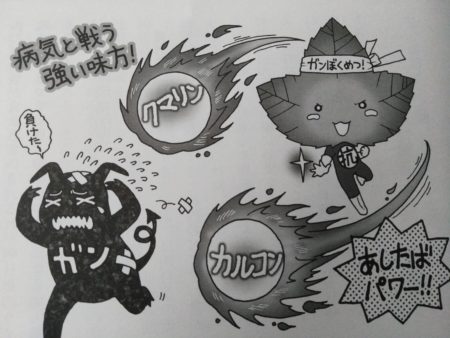 病気と戦う
強い味方!
クマリン
ガンぼくめつ!
抗
負けた、
ガン
カルコン
あしたば
パワー!!